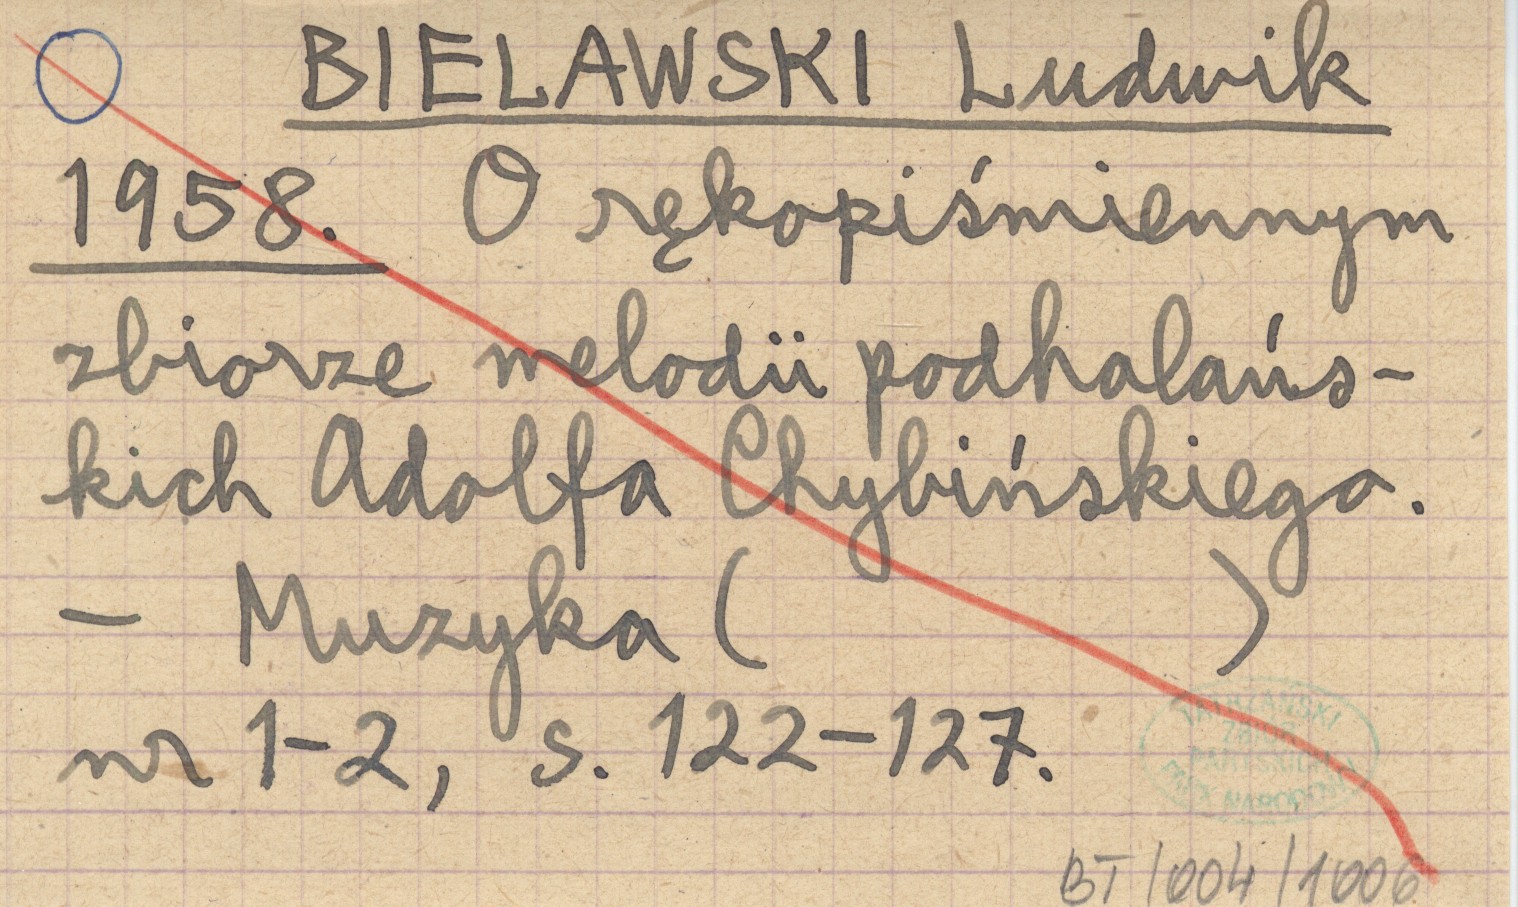 BIELAWSKI Ludwik
1958. O rękopiśmiennym
zbiorze melodii podhalańs-
kich Adolfa Chybińskiego.
- Muzyka ( )
nr 1-2, s. 122-127.
TATRZAŃSKI
PARK NARODOWY
BT/004/1006